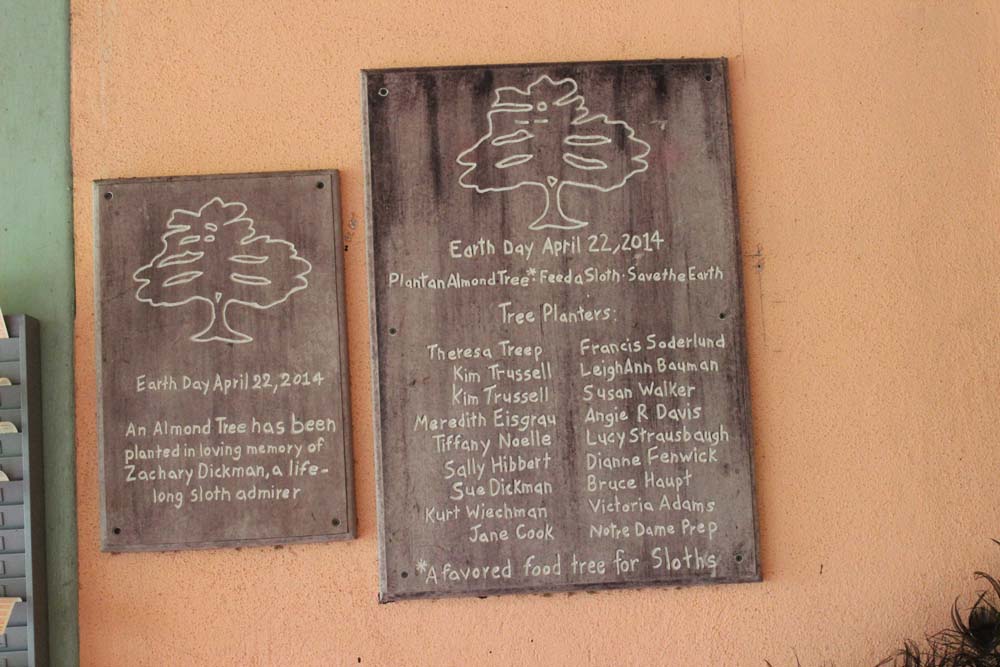 Earth Day April 22, 2014
An Almond Tree has been
planted in loving memory of
Zachary Dickman, a life-
long sloth admirer
Earth Day April 22, 2014
Plant an Almond Tree* · Feed a Sloth · Save the Earth
Tree Planters:
Theresa Treep
Kim Trussell
Kim Trussell
Meredith Eisgrau
Tiffany Noelle
Sally Hibbert
Sue Dickman
Kurt Wiechman
Jane Cook
Francis Soderlund
LeighAnn Bauman
Susan Walker
Angie R Davis
Lucy Strausbaugh
Dianne Fenwick
Bruce Haupt
Victoria Adams
Notre Dame Prep
*A favored food tree for Sloths